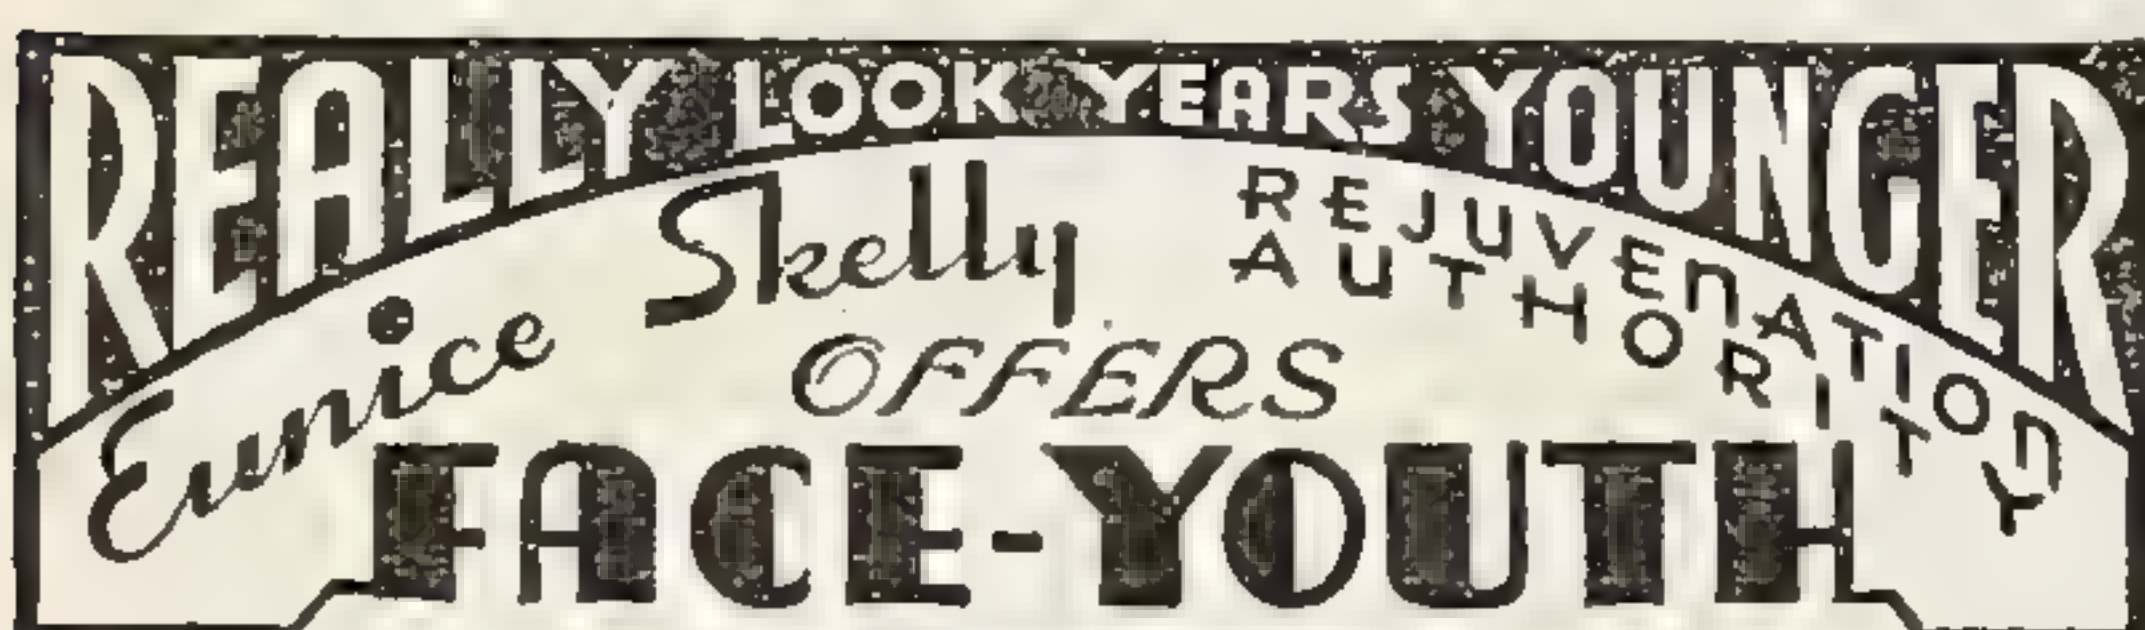 REALLY LOOK YEARS YOUNGER
Eunice Skelly REJUVENATION
AUTHORITY
OFFERS
FACE-YOUTH